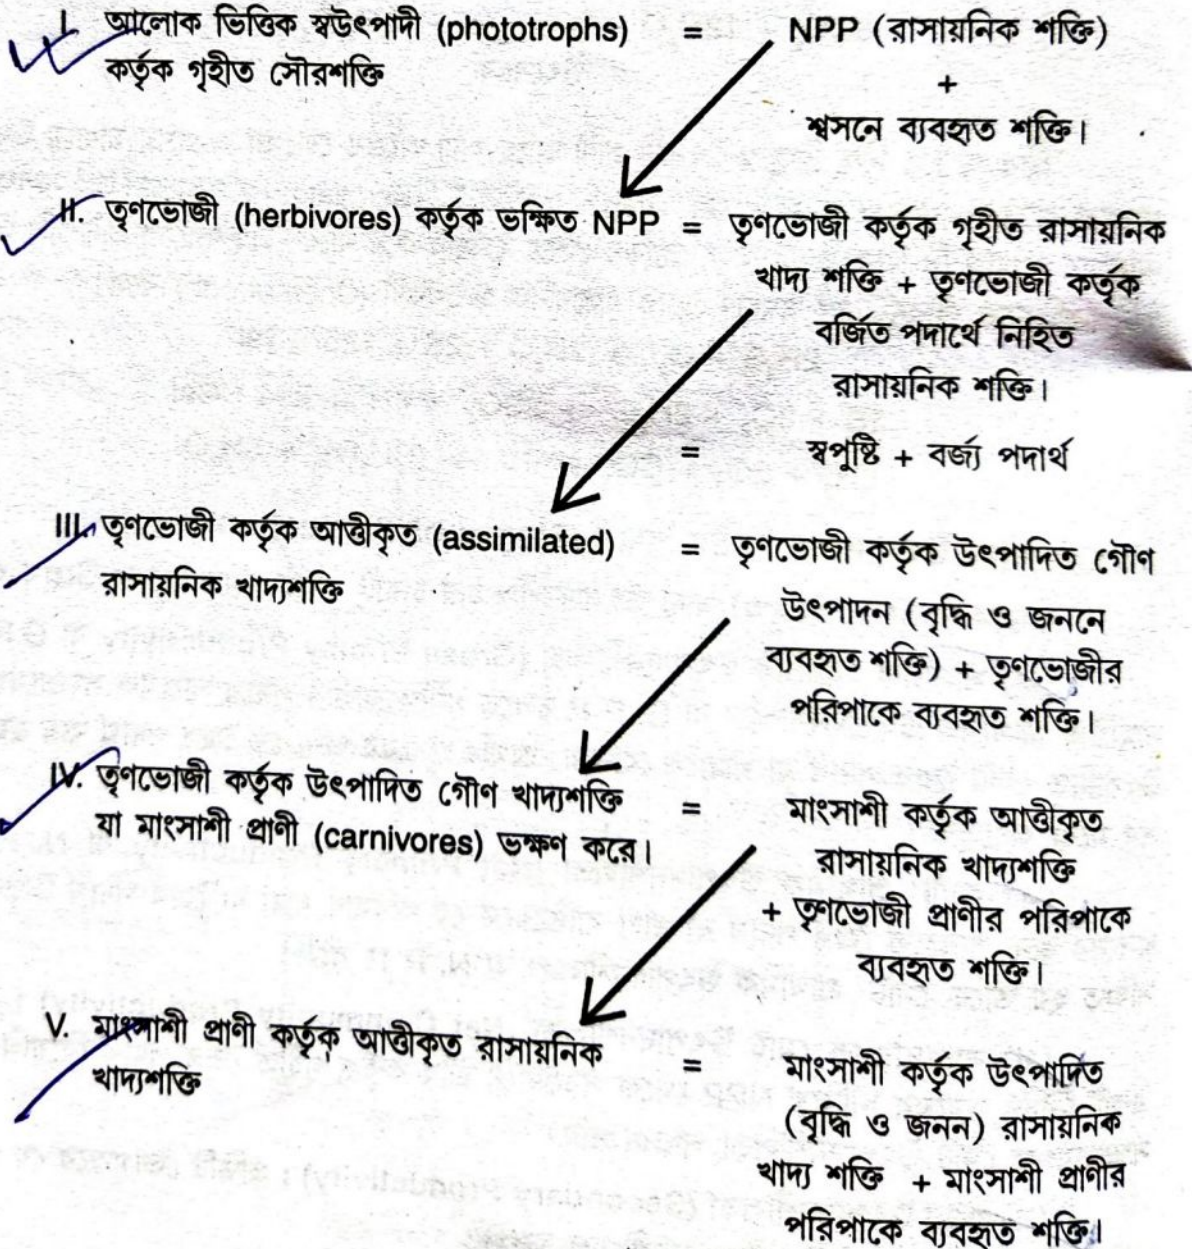 I. আলোক ভিত্তিক স্বউৎপাদী (phototrophs) = NPP (রাসায়নিক শক্তি)
কর্তৃক গৃহীত সৌরশক্তি
+
শ্বসনে ব্যবহৃত শক্তি।
II. তৃণভোজী (herbivores) কর্তৃক ভক্ষিত NPP = তৃণভোজী কর্তৃক গৃহীত রাসায়নিক
খাদ্য শক্তি + তৃণভোজী কর্তৃক
বর্জিত পদার্থে নিহিত
রাসায়নিক শক্তি।
= স্বপুষ্টি + বর্জ্য পদার্থ
III. তৃণভোজী কর্তৃক আত্তীকৃত (assimilated) = তৃণভোজী কর্তৃক উৎপাদিত গৌণ
রাসায়নিক খাদ্যশক্তি
উৎপাদন (বৃদ্ধি ও জননে
ব্যবহৃত শক্তি) + তৃণভোজীর
পরিপাকে ব্যবহৃত শক্তি।
IV. তৃণভোজী কর্তৃক উৎপাদিত গৌণ খাদ্যশক্তি = মাংসাশী কর্তৃক আত্তীকৃত
যা মাংসাশী প্রাণী (carnivores) ভক্ষণ করে।
রাসায়নিক খাদ্যশক্তি
+ তৃণভোজী প্রাণীর পরিপাকে
ব্যবহৃত শক্তি।
V. মাংসাশী প্রাণী কর্তৃক আত্তীকৃত রাসায়নিক = মাংসাশী কর্তৃক উৎপাদিত
খাদ্যশক্তি
(বৃদ্ধি ও জনন) রাসায়নিক
খাদ্য শক্তি + মাংসাশী প্রাণীর
পরিপাকে ব্যবহৃত শক্তি।